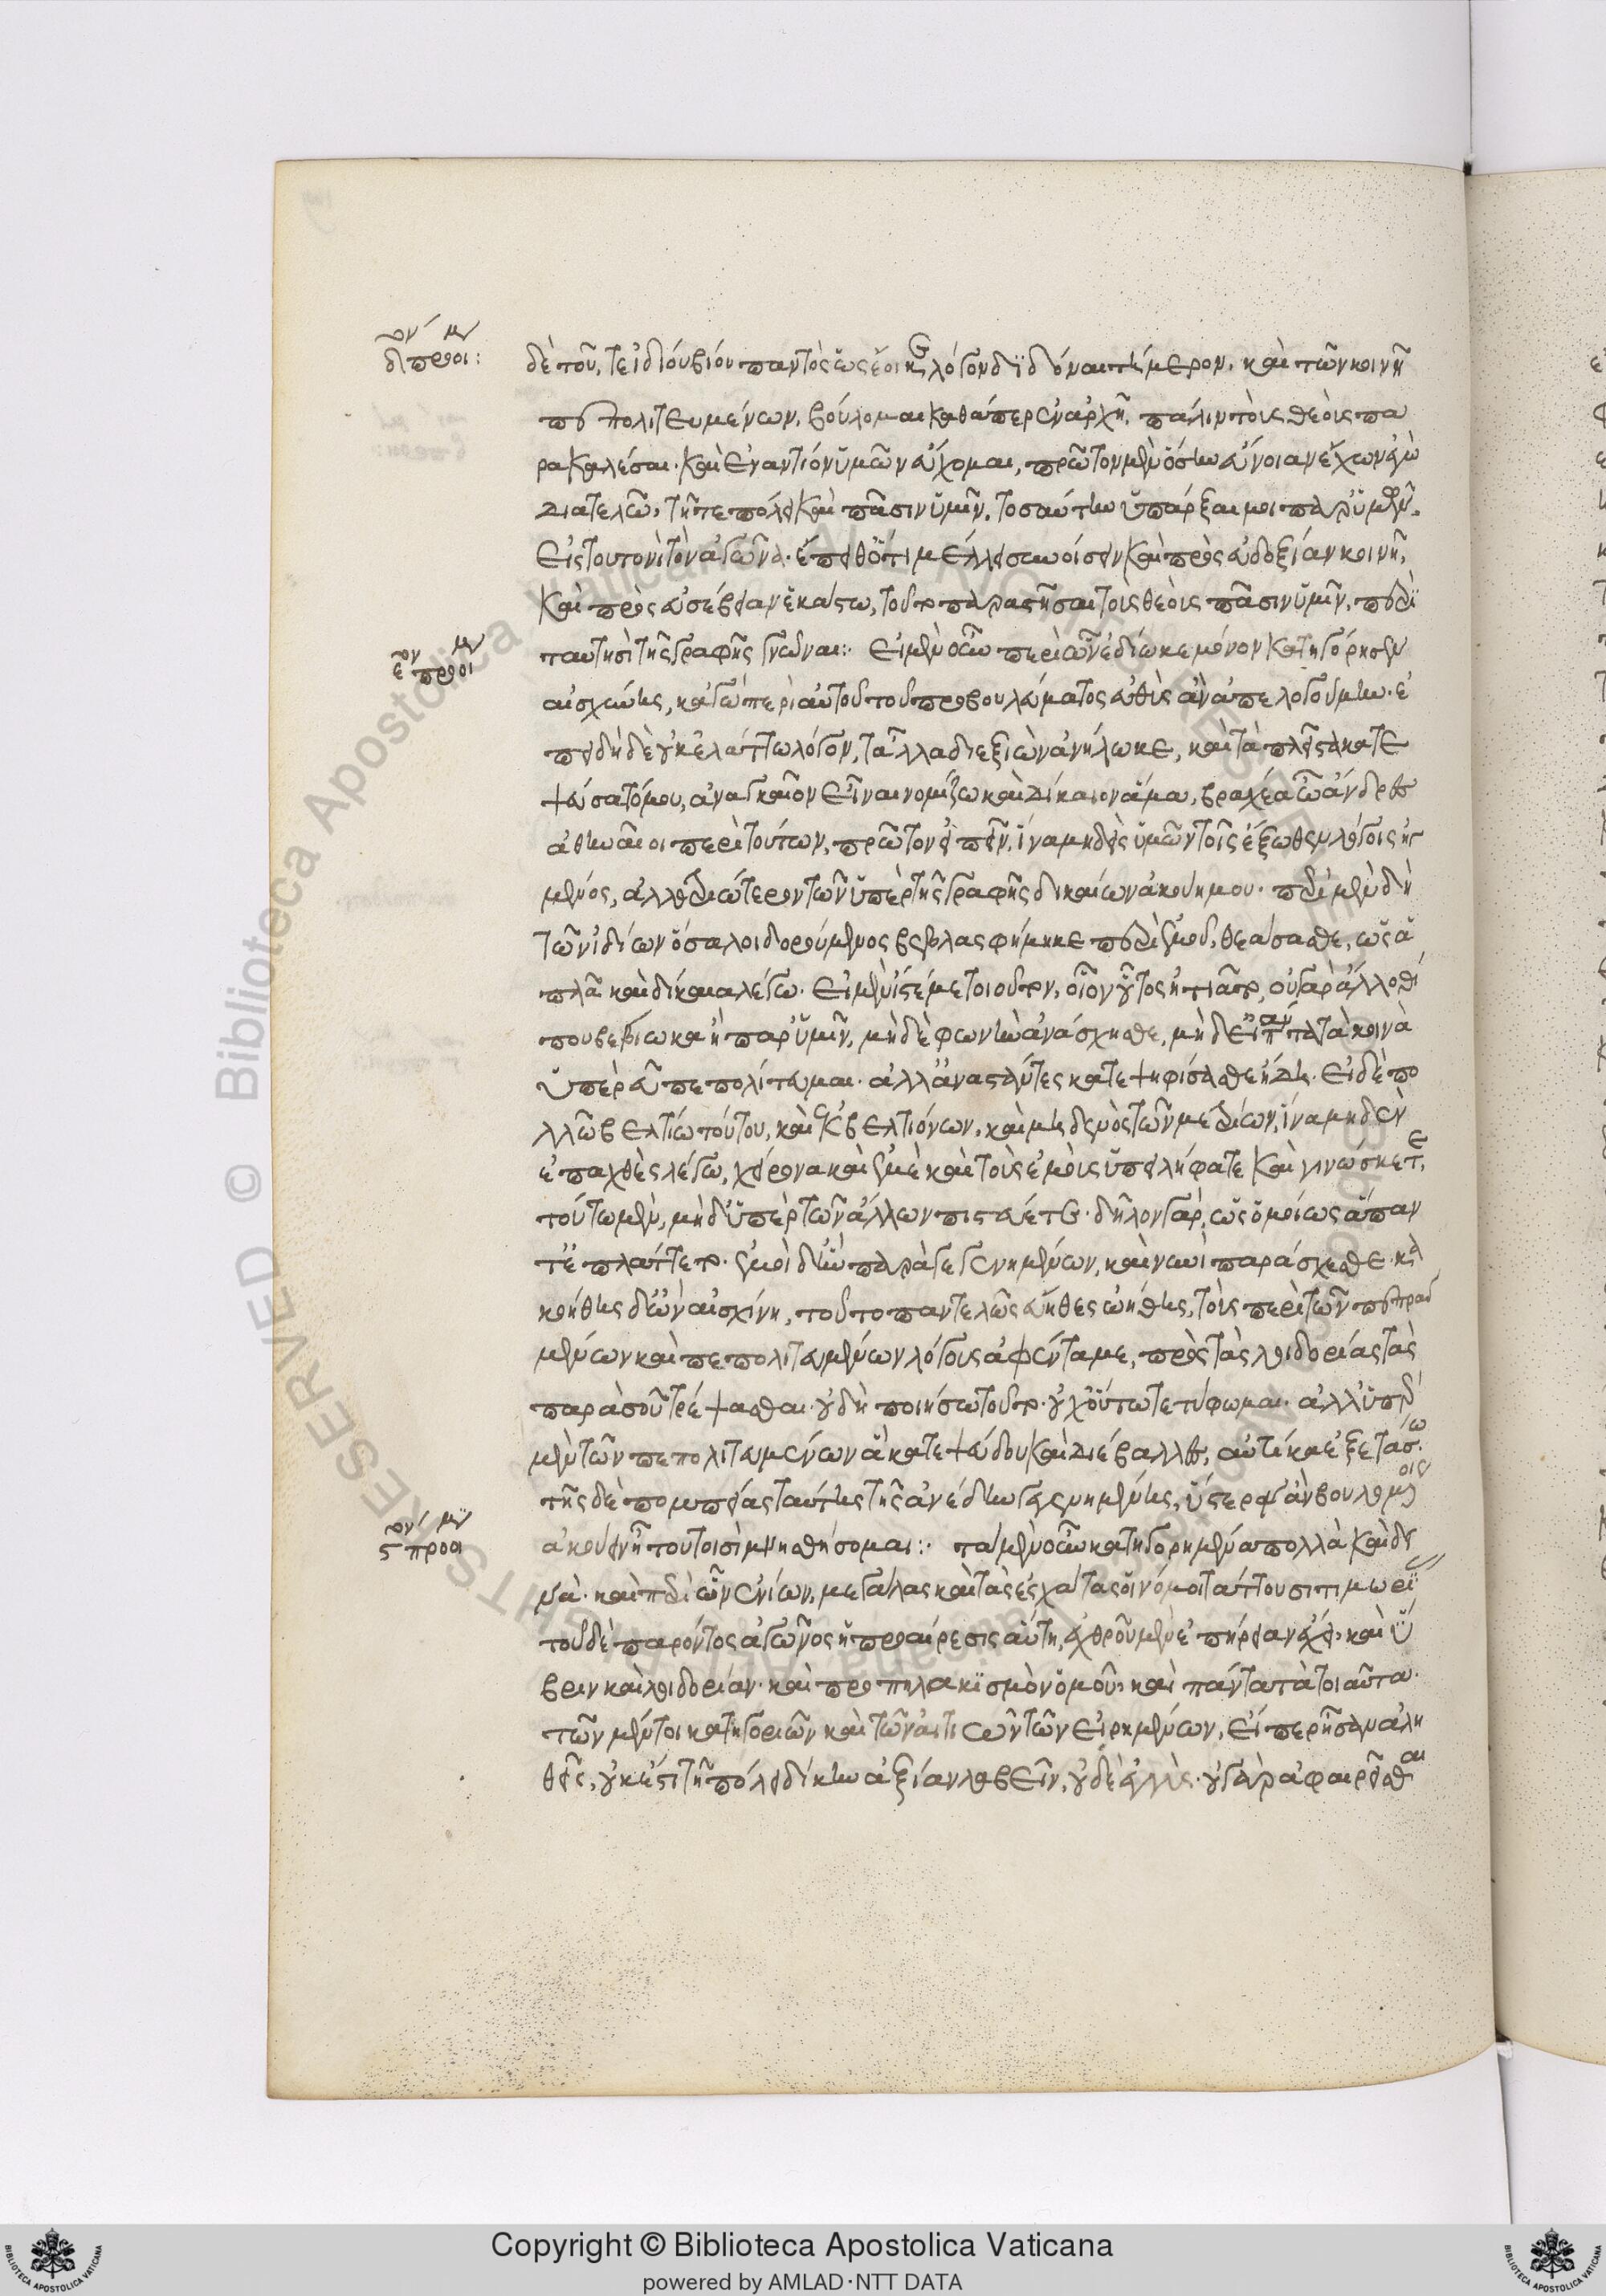 δὲ τοῦ, τε ἰδίου βίου παντὸς ὡς ἔοικε λόγον διδόναι τήμερον, καὶ τῶν κοινῆ
πεπολιτευμένων, βούλομαι καθάπερ ἐν ἀρχῆ, πάλιν τοὺς θεοὺς πα
ρακαλέσαι· καὶ ἐναντίον ὑμῶν εὔχομαι, πρῶτον μὲν ὅσην εὔνοιαν ἔχων ἐγὼ
διατελῶ, τῆ τε πόλει καὶ πᾶσιν ὑμῖν, τοσαύτην ὑπάρξαι μοι παρ' ὑμῶν,
εἰς τουτονὶ τὸν ἀγῶνα· ἔπειθ' ὅτι μέλλει συνοίσειν καὶ πρὸς εὐδοξίαν κοινῆ,
καὶ πρὸς εὐσέβειαν ἑκάστω, τοῦτο παραστῆσαι τοῖς θεοῖς πᾶσιν ὑμῖν, περὶ
ταυτησὶ τῆς γραφῆς γνῶναι:· Εἰ μὲν οὖν περὶ ὧν ἐδίωκε μόνον κατηγόρησεν
αἰσχίνης, κἀγὼ περὶ αὐτοῦ τοῦ προβουλεύματος εὐθὺς ἂν ἀπελογούμην· ἐ
πειδὴ δὲ οὐκ ἐλάττω λόγον, τἄλλα διεξιὼν ἀνήλωκε, καὶ τὰ πλεῖστα κατε
ψεύσατό μου, ἀναγκαῖον εἶναι νομίζω καὶ δίκαιον ἅμα, βραχέα ὦ ἄνδρες
ἀθηναῖοι περὶ τούτων, πρῶτον εἰπεῖν, ἵνα μηδεὶς ὑμῶν τοῖς ἔξωθεν λόγοις ἠγ
μένος, ἀλλοτριώτερον τῶν ὑπὲρ τῆς γραφῆς δικαίων ἀκούη μου· περὶ μὲν δὴ
τῶν ἰδίων ὅσα λοιδορούμενος βεβλασφήμηκε περὶ ἐμοῦ, θεάσασθε, ὡς ἁ
πλᾶ καὶ δίκαια λέγω· εἰ μὲν ἴστε με τοιοῦτον, οἷον οὗτος ἠτιᾶτο, οὐ γὰρ ἄλλοθί
που βεβίωκα ἢ παρ' ὑμῖν, μὴ δὲ φωνὴν ἀνάσχησθε, μὴ δ' εἰ πάντα τὰ κοινὰ
ὑπὲρ εὖ πεπολίτευμαι· ἀλλ' ἀναστάντες καταψηφίσασθε ἤδη· εἰ δὲ πο
λλῶ βελτίω τούτου, καὶ ἐκ βελτιόνων, καὶ μηδενὸς τῶν μετρίων, ἵνα μηδὲν
ἐπαχθὲς λέγω, χείρονα καὶ ἐμὲ καὶ τοὺς ἐμοὺς ὑπειλήφατε καὶ γινώσκετε,
τούτω μὲν, μὴ δ' ὑπὲρ τῶν ἄλλων πιστεύετε· δῆλον γὰρ, ὡς ὁμοίως ἅπαν
τ' ἐπλάττετο· ἐμοὶ δ' ἣν παρὰ γεγενημένων, καὶ νυνὶ παράσχεσθε· κα
κοήθης δ' ὢν αἰσχίνη, τοῦτο παντελῶς εὔηθες ὠήθης, τοὺς περὶ τῶν πεπραγ
μένων καὶ πεπολιτευμένων λόγους ἀφέντα με, πρὸς τὰς λοιδορίας τὰς
παρὰ σοῦ τρέψασθαι· οὐ δὴ ποιήσω τοῦτο· οὐχ οὕτω τετύφωμαι· ἀλλ' ὑπὲρ
μὲν τῶν πεπολιτευμένων ἃ κατεψεύδου καὶ διέβαλλες, αὐτίκα ἐξετάσω·
τῆς δὲ πομπείας ταύτης τῆς ἀνέδην γεγενημένης, ὕστερον ἂν βουλομένοις
ἀκούειν ἦ τουτοισὶ μνησθήσομαι:· τὰ μὲν οὖν κατηγορημένα πολλὰ καὶ δει
νά· καὶ περὶ ὧν ἐνίων, μεγάλας καὶ τὰς ἐσχάτας οἱ νόμοι τάττουσι τιμωρί
τοῦ δὲ παρόντος ἀγῶνος ἡ προαίρεσις αὕτη, ἐχθροῦ μὲν ἐπήρειαν ἔχει· καὶ ὕ
βριν καὶ λοιδορίαν· καὶ προπηλακισμὸν ὁμοῦ· καὶ πάντα τὰ τοιαῦτα·
τῶν μέντοι κατηγοριῶν καὶ τῶν αἰτιῶν τῶν εἰρημένων, εἴπερ ἦσαν ἀλη
θεῖς, οὐκ ἔνι τῆ πόλει δίκην ἀξίαν λαβεῖν, οὐδ' ἐγγύς· οὐ γὰρ ἀφαιρεῖσθαι
Copyright © Biblioteca Apostolica Vaticana
powered by AMLAD·NTT DATA